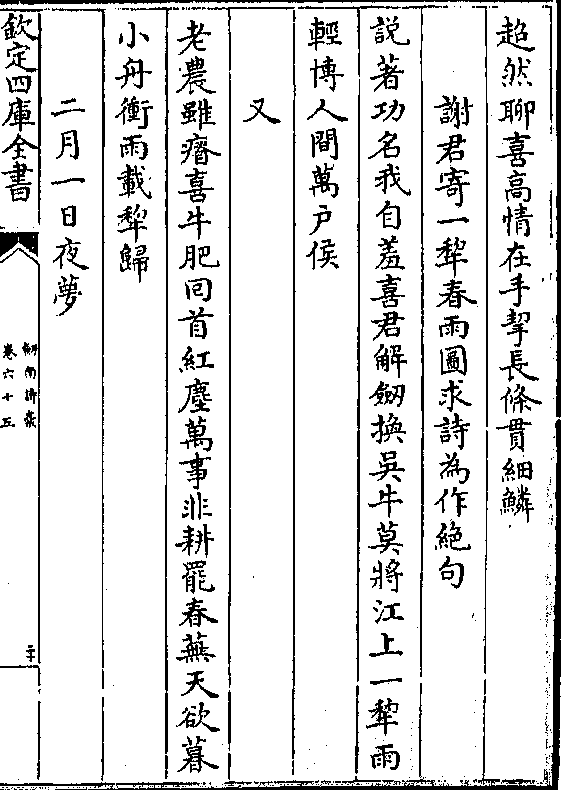 超然聊喜高情在手挈長條貫細鱗
謝君寄一犂春雨圖求詩為作絶句
説著功名我自羞喜君解劒換吳牛莫將江上一犂雨
輕博人間萬户侯
又
老農雖瘠喜牛肥回首紅塵萬事非耕罷春蕪天欲暮
小舟衝雨載犂歸
二月一日夜夢
欽定四庫全書
劒南詩藁
卷六十五
二十